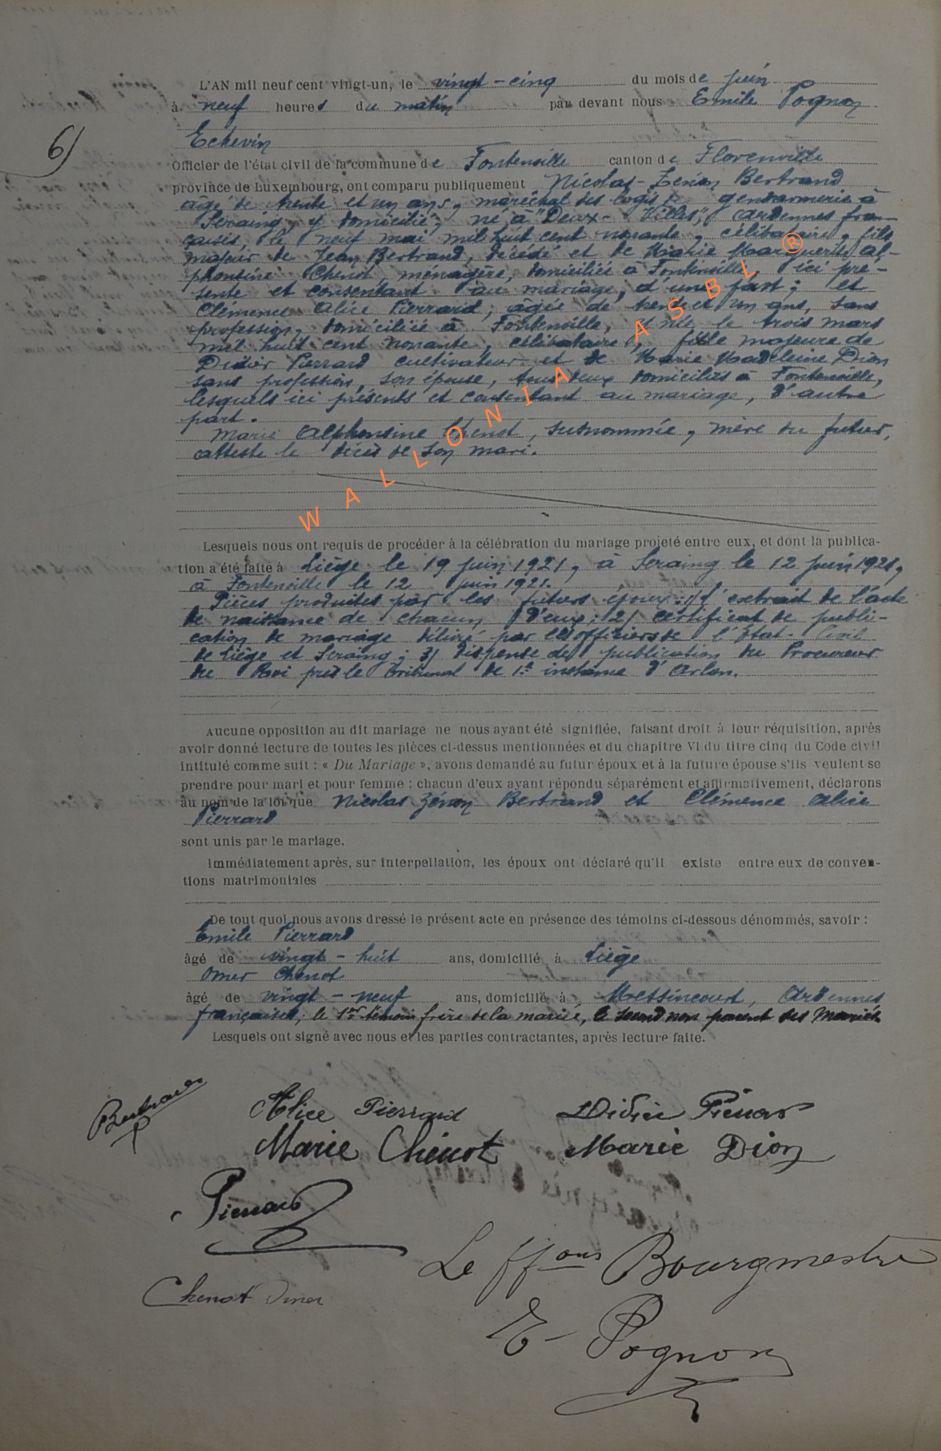 L'AN mil neuf cent vingt-un, le vingt-cinq du mois de juin
à neuf heures du matin par devant nous Emile Pognon
Echevin
6)
Officier de l'état civil de la commune de Fontenoille canton de Florenville
province de Luxembourg, ont comparu publiquement Nicolas-Zénon Bertrand
âgé de trente et un ans, maréchal des logis de gendarmerie à
Seraing, y domicilié, né à Deux-Villes, Ardennes fran-
çaises, le neuf mai mil huit cent nonante, célibataire, fils
majeur de Jean Bertrand, décédé et de Marie Marguerite Al-
phonsine Chenot, ménagère, domiciliée à Fontenoille, ici pré-
sente et consentant au mariage, d'une part; et
Clémence Alice Pierrard, âgée de trente et un ans, sans
profession, domiciliée à Fontenoille, née le trois mars
mil huit cent nonante, célibataire, fille majeure de
Didier Pierrard cultivateur et de Marie Madeleine Dion
sans profession, son épouse, tous deux domiciliés à Fontenoille,
lesquels ici présents et consentant au mariage, d'autre
part.
Marie Alphonsine Chenot, susnommée, mère du futur,
atteste le décès de son mari.
WALLONIA ASBL ®
Lesquels nous ont requis de procéder à la célébration du mariage projeté entre eux, et dont la publica-
tion a été faite à Liège le 19 juin 1921, à Seraing le 12 juin 1921,
à Fontenoille le 12 juin 1921.
Pièces produites par les futurs époux: 1/ l'extrait de l'acte
de naissance de chacun d'eux; 2/ certificat de publi-
cation de mariage délivré par les officiers de l'Etat-Civil
de Liège et Seraing; 3/ dispense de publication du Procureur
du Roi près le Tribunal de 1e instance d'Arlon.
Aucune opposition au dit mariage ne nous ayant été signifiée, faisant droit à leur réquisition, après
avoir donné lecture de toutes les pièces ci-dessus mentionnées et du chapitre VI du titre cinq du Code civil
intitulé comme suit : « Du Mariage », avons demandé au futur époux et à la future épouse s'ils veulent se
prendre pour mari et pour femme : chacun d'eux ayant répondu séparément et affirmativement, déclarons
au nom de la loi que Nicolas Zénon Bertrand et Clémence Alice
Pierrard
sont unis par le mariage.
Immédiatement après, sur interpellation, les époux ont déclaré qu'il existe entre eux de conven-
tions matrimoniales
De tout quoi nous avons dressé le présent acte en présence des témoins ci-dessous dénommés, savoir :
Emile Pierrard
âgé de vingt-huit ans, domicilié à Liège
Omer Chenot
âgé de vingt-neuf ans, domicilié à Messincourt, Ardennes
françaises, le 1er témoin frère de la mariée, le second non parent des Mariés
Lesquels ont signé avec nous et les parties contractantes, après lecture faite.
Bertrand Alice Pierrard Didier Piérard
Marie Chénot Marie Dion
Pierrard
Le ffons Bourgmestre
Chenot Omer
E Pognon